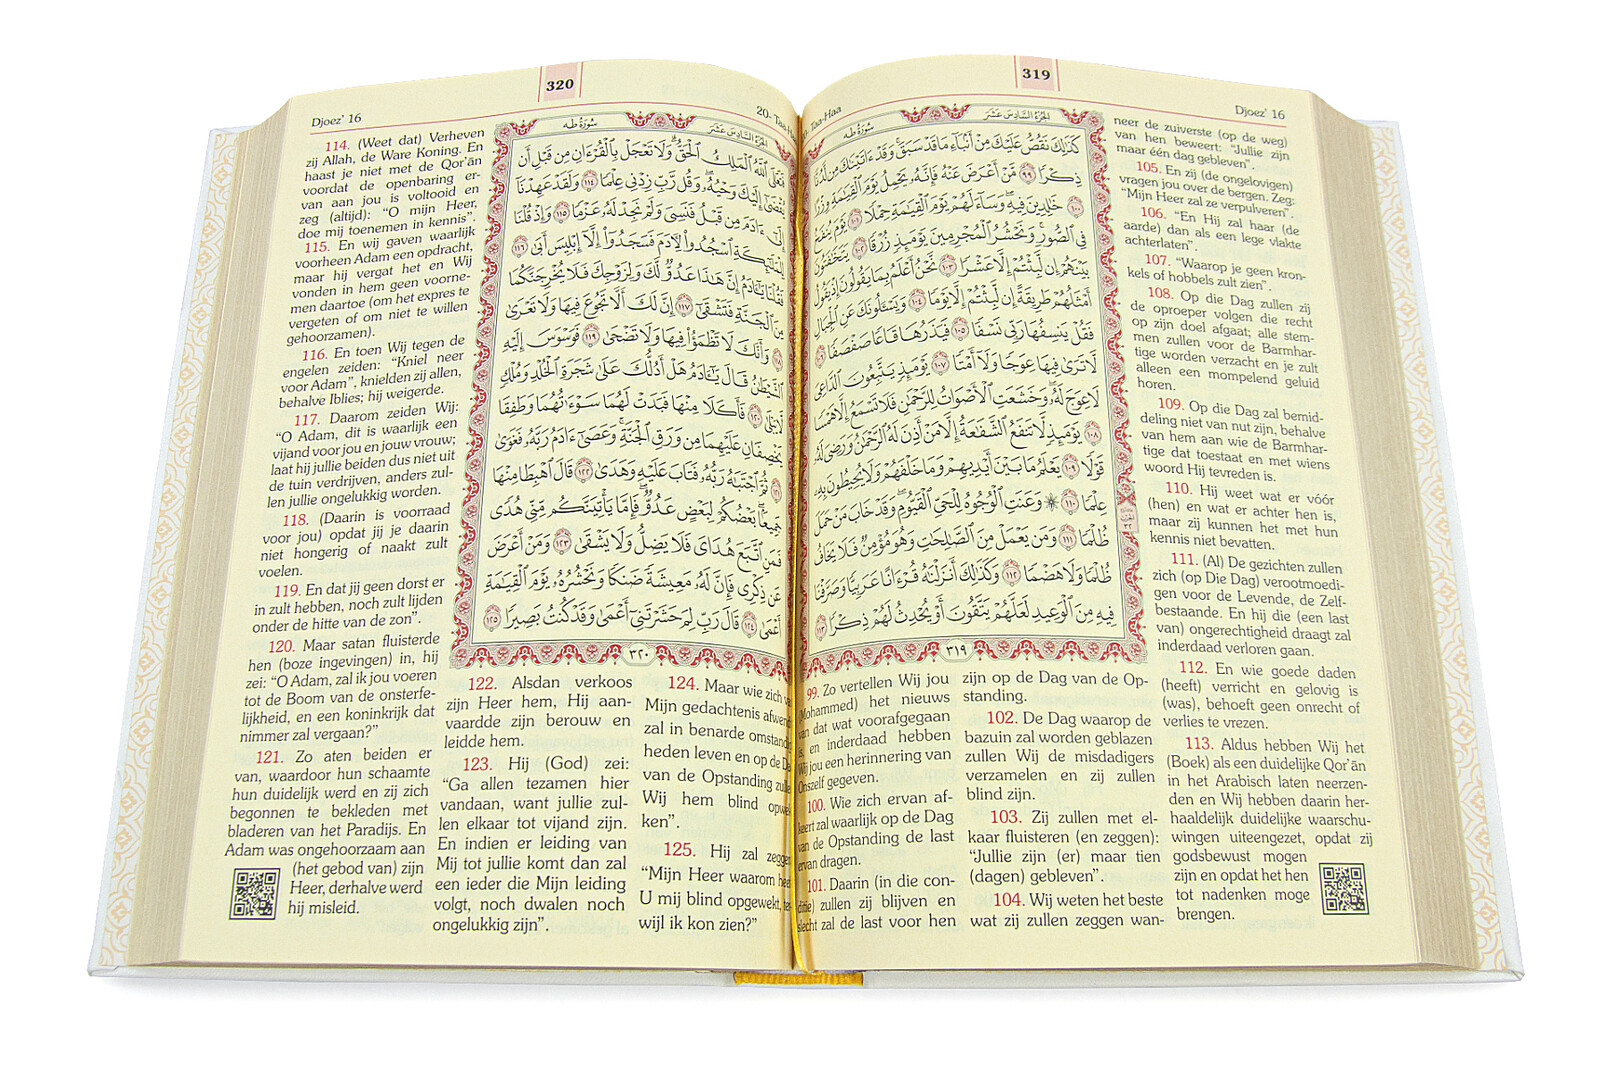 319
20- Taa-Haa
Djoez’ 16
سُورَةُ طه
الجُزْءُ السَّادِسَ عَشَرَ
كَذَٰلِكَ نَقُصُّ عَلَيْكَ مِنْ أَنۢبَآءِ مَا قَدْ سَبَقَ ۚ وَقَدْ ءَاتَيْنَٰكَ مِن لَّدُنَّا
ذِكْرًا ٩٩ مَّنْ أَعْرَضَ عَنْهُ فَإِنَّهُۥ يَحْمِلُ يَوْمَ ٱلْقِيَٰمَةِ وِزْرًا
١٠٠ خَٰلِدِينَ فِيهِ ۖ وَسَآءَ لَهُمْ يَوْمَ ٱلْقِيَٰمَةِ حِمْلًا ١٠١ يَوْمَ يُنفَخُ
فِى ٱلصُّورِ ۚ وَنَحْشُرُ ٱلْمُجْرِمِينَ يَوْمَئِذٍ زُرْقًا ١٠٢ يَتَخَٰفَتُونَ
بَيْنَهُمْ إِن لَّبِثْتُمْ إِلَّا عَشْرًا ١٠٣ نَّحْنُ أَعْلَمُ بِمَا يَقُولُونَ إِذْ يَقُولُ
أَمْثَلُهُمْ طَرِيقَةً إِن لَّبِثْتُمْ إِلَّا يَوْمًا ١٠٤ وَيَسْـَٔلُونَكَ عَنِ ٱلْجِبَالِ
فَقُلْ يَنسِفُهَا رَبِّى نَسْفًا ١٠٥ فَيَذَرُهَا قَاعًا صَفْصَفًا ١٠٦
لَّا تَرَىٰ فِيهَا عِوَجًا وَلَآ أَمْتًا ١٠٧ يَوْمَئِذٍ يَتَّبِعُونَ ٱلدَّاعِىَ
لَا عِوَجَ لَهُۥ ۖ وَخَشَعَتِ ٱلْأَصْوَاتُ لِلرَّحْمَٰنِ فَلَا تَسْمَعُ إِلَّا هَمْسًا
١٠٨ يَوْمَئِذٍ لَّا تَنفَعُ ٱلشَّفَٰعَةُ إِلَّا مَنْ أَذِنَ لَهُ ٱلرَّحْمَٰنُ وَرَضِىَ لَهُۥ
قَوْلًا ١٠٩ يَعْلَمُ مَا بَيْنَ أَيْدِيهِمْ وَمَا خَلْفَهُمْ وَلَا يُحِيطُونَ بِهِۦ
عِلْمًا ١١٠ ۞ وَعَنَتِ ٱلْوُجُوهُ لِلْحَىِّ ٱلْقَيُّومِ ۖ وَقَدْ خَابَ مَنْ حَمَلَ
ظُلْمًا ١١١ وَمَن يَعْمَلْ مِنَ ٱلصَّٰلِحَٰتِ وَهُوَ مُؤْمِنٌ فَلَا يَخَافُ
ظُلْمًا وَلَا هَضْمًا ١١٢ وَكَذَٰلِكَ أَنزَلْنَٰهُ قُرْءَانًا عَرَبِيًّا وَصَرَّفْنَا
فِيهِ مِنَ ٱلْوَعِيدِ لَعَلَّهُمْ يَتَّقُونَ أَوْ يُحْدِثُ لَهُمْ ذِكْرًا ١١٣
٣١٩
99. Zo vertellen Wij jou
Mohammed) het nieuws
van dat wat voorafgegaan
is, en inderdaad hebben
Wij jou een herinnering van
Onszelf gegeven.
100. Wie zich ervan af-
keert zal waarlijk op de Dag
van de Opstanding de last
ervan dragen.
101. Daarin (in die con-
ditie) zullen zij blijven en
slecht zal de last voor hen
zijn op de Dag van de Op-
standing.
102. De Dag waarop de
bazuin zal worden geblazen
zullen Wij de misdadigers
verzamelen en zij zullen
blind zijn.
103. Zij zullen met el-
kaar fluisteren (en zeggen):
“Jullie zijn (er) maar tien
(dagen) gebleven”.
104. Wij weten het beste
wat zij zullen zeggen wan-
neer de zuiverste (op de weg)
van hen beweert: “Jullie zijn
maar één dag gebleven”.
105. En zij (de ongelovigen)
vragen jou over de bergen. Zeg:
“Mijn Heer zal ze verpulveren”.
106. “En Hij zal haar (de
aarde) dan als een lege vlakte
achterlaten”.
107. “Waarop je geen kron-
kels of hobbels zult zien”.
108. Op die Dag zullen zij
de oproeper volgen die recht
op zijn doel afgaat; alle stem-
men zullen voor de Barmhar-
tige worden verzacht en je zult
alleen een mompelend geluid
horen.
109. Op die Dag zal bemid-
deling niet van nut zijn, behalve
van hem aan wie de Barmhar-
tige dat toestaat en met wiens
woord Hij tevreden is.
110. Hij weet wat er vóór
(hen) en wat er achter hen is,
maar zij kunnen het met hun
kennis niet bevatten.
111. (Al) De gezichten zullen
zich (op Die Dag) verootmoedi-
gen voor de Levende, de Zelf-
bestaande. En hij die (een last
van) ongerechtigheid draagt zal
inderdaad verloren gaan.
112. En wie goede daden
(heeft) verricht en gelovig is
(was), behoeft geen onrecht of
verlies te vrezen.
113. Aldus hebben Wij het
(Boek) als een duidelijke Qor’ān
in het Arabisch laten neerzen-
den en Wij hebben daarin her-
haaldelijk duidelijke waarschu-
wingen uiteengezet, opdat zij
godsbewust mogen
zijn en opdat het hen
tot nadenken moge
brengen.
320
Djoez’ 16
20- Taa-Haa
سُورَةُ طه
الجُزْءُ السَّادِسَ عَشَرَ
فَتَعَٰلَى ٱللَّهُ ٱلْمَلِكُ ٱلْحَقُّ ۗ وَلَا تَعْجَلْ بِٱلْقُرْءَانِ مِن قَبْلِ أَن
يُقْضَىٰٓ إِلَيْكَ وَحْيُهُۥ ۖ وَقُل رَّبِّ زِدْنِى عِلْمًا ١١٤ وَلَقَدْ عَهِدْنَآ
إِلَىٰٓ ءَادَمَ مِن قَبْلُ فَنَسِىَ وَلَمْ نَجِدْ لَهُۥ عَزْمًا ١١٥ وَإِذْ قُلْنَا
لِلْمَلَٰٓئِكَةِ ٱسْجُدُوا۟ لِـَٔادَمَ فَسَجَدُوٓا۟ إِلَّآ إِبْلِيسَ أَبَىٰ ١١٦
فَقُلْنَا يَٰٓـَٔادَمُ إِنَّ هَٰذَا عَدُوٌّ لَّكَ وَلِزَوْجِكَ فَلَا يُخْرِجَنَّكُمَا
مِنَ ٱلْجَنَّةِ فَتَشْقَىٰٓ ١١٧ إِنَّ لَكَ أَلَّا تَجُوعَ فِيهَا وَلَا تَعْرَىٰ
١١٨ وَأَنَّكَ لَا تَظْمَؤُا۟ فِيهَا وَلَا تَضْحَىٰ ١١٩ فَوَسْوَسَ إِلَيْهِ
ٱلشَّيْطَٰنُ قَالَ يَٰٓـَٔادَمُ هَلْ أَدُلُّكَ عَلَىٰ شَجَرَةِ ٱلْخُلْدِ وَمُلْكٍ
لَّا يَبْلَىٰ ١٢٠ فَأَكَلَا مِنْهَا فَبَدَتْ لَهُمَا سَوْءَٰتُهُمَا وَطَفِقَا
يَخْصِفَانِ عَلَيْهِمَا مِن وَرَقِ ٱلْجَنَّةِ ۚ وَعَصَىٰٓ ءَادَمُ رَبَّهُۥ فَغَوَىٰ
١٢١ ثُمَّ ٱجْتَبَٰهُ رَبُّهُۥ فَتَابَ عَلَيْهِ وَهَدَىٰ ١٢٢ قَالَ ٱهْبِطَا مِنْهَا
جَمِيعًۢا ۖ بَعْضُكُمْ لِبَعْضٍ عَدُوٌّ ۖ فَإِمَّا يَأْتِيَنَّكُم مِّنِّى هُدًى
فَمَنِ ٱتَّبَعَ هُدَاىَ فَلَا يَضِلُّ وَلَا يَشْقَىٰ ١٢٣ وَمَنْ أَعْرَضَ
عَن ذِكْرِى فَإِنَّ لَهُۥ مَعِيشَةً ضَنكًا وَنَحْشُرُهُۥ يَوْمَ ٱلْقِيَٰمَةِ
أَعْمَىٰ ١٢٤ قَالَ رَبِّ لِمَ حَشَرْتَنِىٓ أَعْمَىٰ وَقَدْ كُنتُ بَصِيرًا ١٢٥
٣٢٠
114. (Weet dat) Verheven
zij Allah, de Ware Koning. En
haast je niet met de Qor’ān
voordat de openbaring er-
van aan jou is voltooid en
zeg (altijd): “O mijn Heer,
doe mij toenemen in kennis”.
115. En wij gaven waarlijk
voorheen Adam een opdracht,
maar hij vergat het en Wij
vonden in hem geen voorne-
men daartoe (om het expres te
vergeten of om niet te willen
gehoorzamen).
116. En toen Wij tegen de
engelen zeiden: “Kniel neer
voor Adam”, knielden zij allen,
behalve Iblies; hij weigerde.
117. Daarom zeiden Wij:
“O Adam, dit is waarlijk een
vijand voor jou en jouw vrouw;
laat hij jullie beiden dus niet uit
de tuin verdrijven, anders zul-
len jullie ongelukkig worden.
118. (Daarin is voorraad
voor jou) opdat jij je daarin
niet hongerig of naakt zult
voelen.
119. En dat jij geen dorst er
in zult hebben, noch zult lijden
onder de hitte van de zon”.
120. Maar satan fluisterde
hen (boze ingevingen) in, hij
zei: “O Adam, zal ik jou voeren
tot de Boom van de onsterfe-
lijkheid, en een koninkrijk dat
nimmer zal vergaan?”
121. Zo aten beiden er
van, waardoor hun schaamte
hun duidelijk werd en zij zich
begonnen te bekleden met
bladeren van het Paradijs. En
Adam was ongehoorzaam aan
(het gebod van) zijn
Heer, derhalve werd
hij misleid.
122. Alsdan verkoos
zijn Heer hem, Hij aan-
vaardde zijn berouw en
leidde hem.
123. Hij (God) zei:
“Ga allen tezamen hier
vandaan, want jullie zul-
len elkaar tot vijand zijn.
En indien er leiding van
Mij tot jullie komt dan zal
een ieder die Mijn leiding
volgt, noch dwalen noch
ongelukkig zijn”.
124. Maar wie zich van
Mijn gedachtenis afwendt
zal in benarde omstandig-
heden leven en op de Dag
van de Opstanding zullen
Wij hem blind opwek-
ken”.
125. Hij zal zeggen:
“Mijn Heer waarom heeft
U mij blind opgewekt, ter-
wijl ik kon zien?”